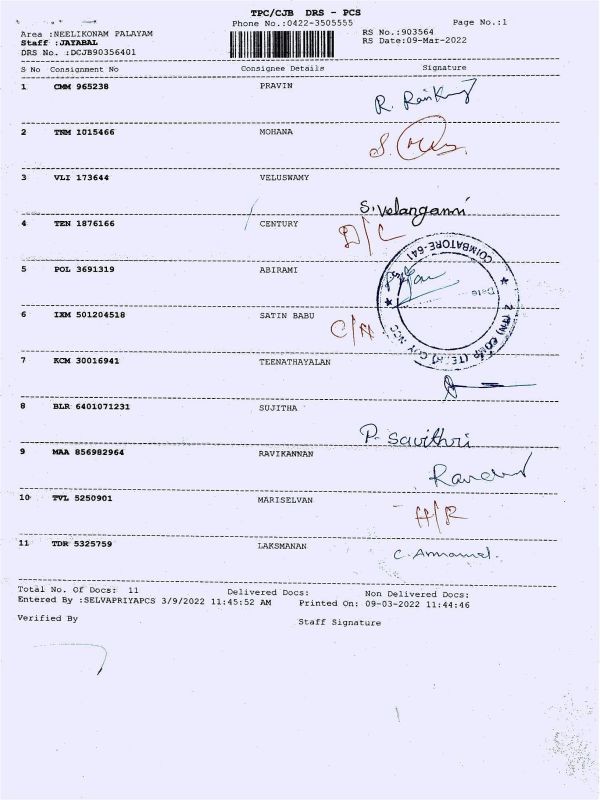 TPC/CJB DRS - PCS
Phone No.:0422-3505555 Page No.:1
Area :NEELIKONAM PALAYAM RS No.:903564
Staff :JAYABAL RS Date:09-Mar-2022
DRS No. :DCJB90356401
S No Consignment No Consignee Details Signature
1 CMM 965238 PRAVIN
R.
2 TNM 1015466 MOHANA
S.
3 VLI 173644 VELUSWAMY
S.Velanganni
4 TEN 1876166 CENTURY
D/L
COIMBATORE-641
5 POL 3691319 ABIRAMI
Date
6 IXM 501204518 SATIN BABU
2 (TN) COY NCC
7 KCM 30016941 TEENATHAYALAN
8 BLR 6401071231 SUJITHA
P. Savithri
9 MAA 856982964 RAVIKANNAN
10 TVL 5250901 MARISELVAN
H/R
11 TDR 5325759 LAKSMANAN
C.
Total No. Of Docs: 11 Delivered Docs: Non Delivered Docs:
Entered By :SELVAPRIYAPCS 3/9/2022 11:45:52 AM Printed On: 09-03-2022 11:44:46
Verified By Staff Signature